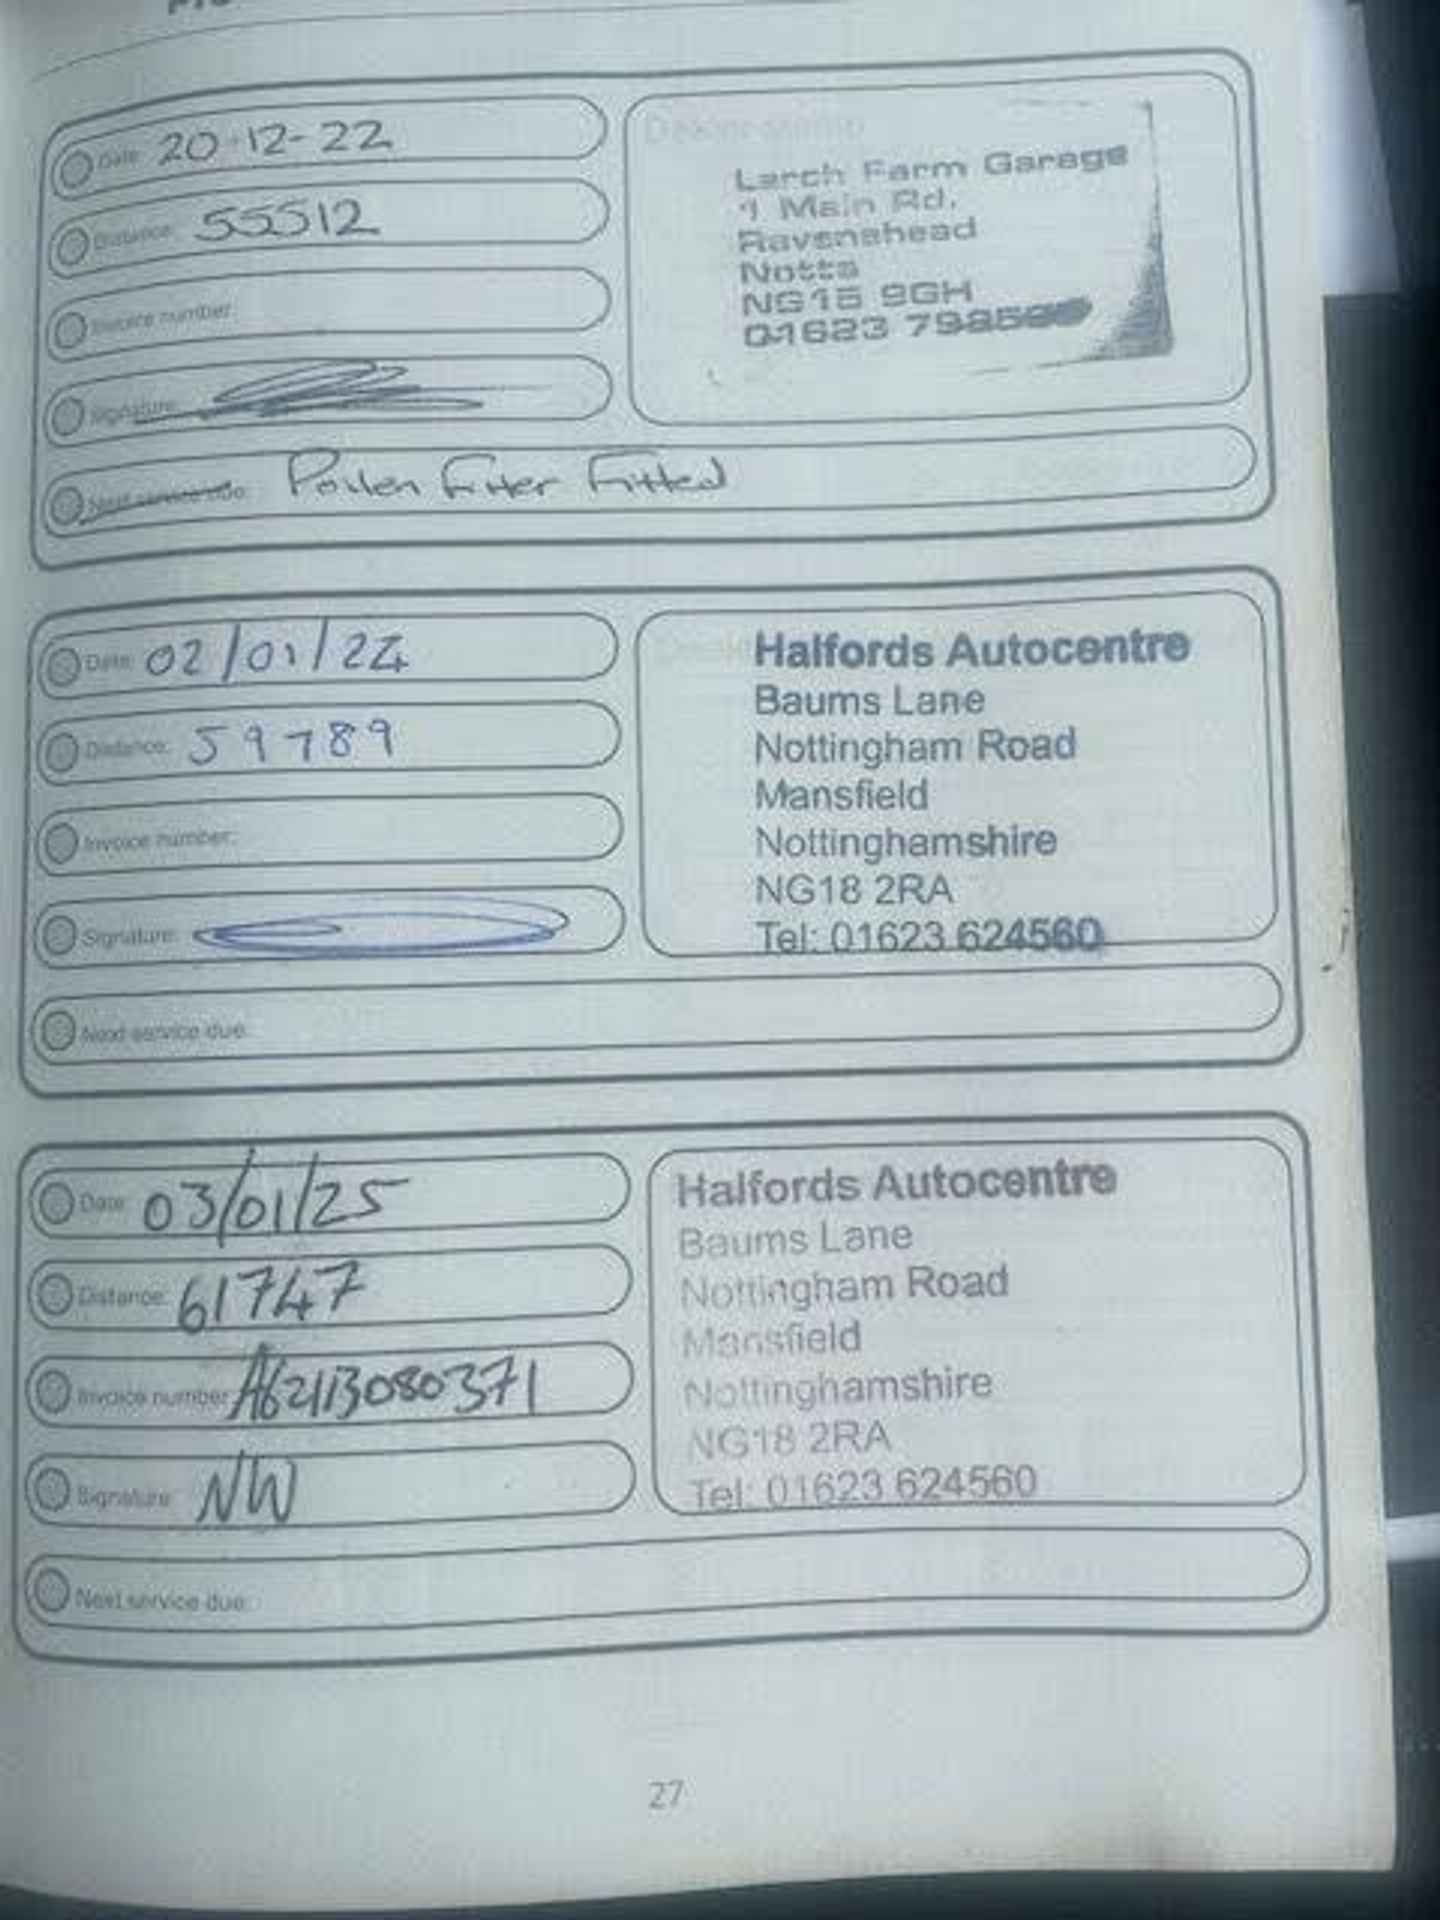 Date: 20-12-22
Distance: 55512
Invoice number:
Signature:
Next service due: Pollen Filter Fitted
Larch Farm Garage
1 Main Rd,
Ravenshead
Notts
NG15 9GH
01623
Date: 02/01/24
Distance: 59789
Invoice number:
Signature:
Next service due:
Halfords Autocentre
Baums Lane
Nottingham Road
Mansfield
Nottinghamshire
NG18 2RA
Tel: 01623 624560
Date: 03/01/25
Distance: 61747
Invoice number: A62113080371
Signature: NW
Next service due:
Halfords Autocentre
Baums Lane
Nottingham Road
Mansfield
Nottinghamshire
NG18 2RA
Tel: 01623 624560
27